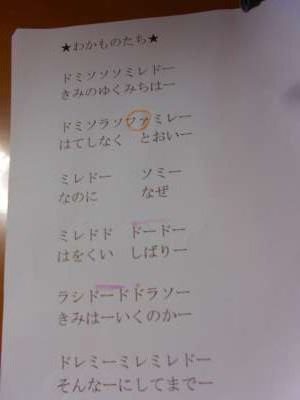 ★わかものたち★
ドミソソソミレドー
きみのゆくみちはー
ドミソラソファミレー
はてしなく　とおいー
ミレドー　　ソミー
なのに　　　なぜ
ミレドド　ドードー
はをくい　しばりー
ラシドードドラソー
きみはーいくのかー
ドレミーミレミレドー
そんなーにしてまでー